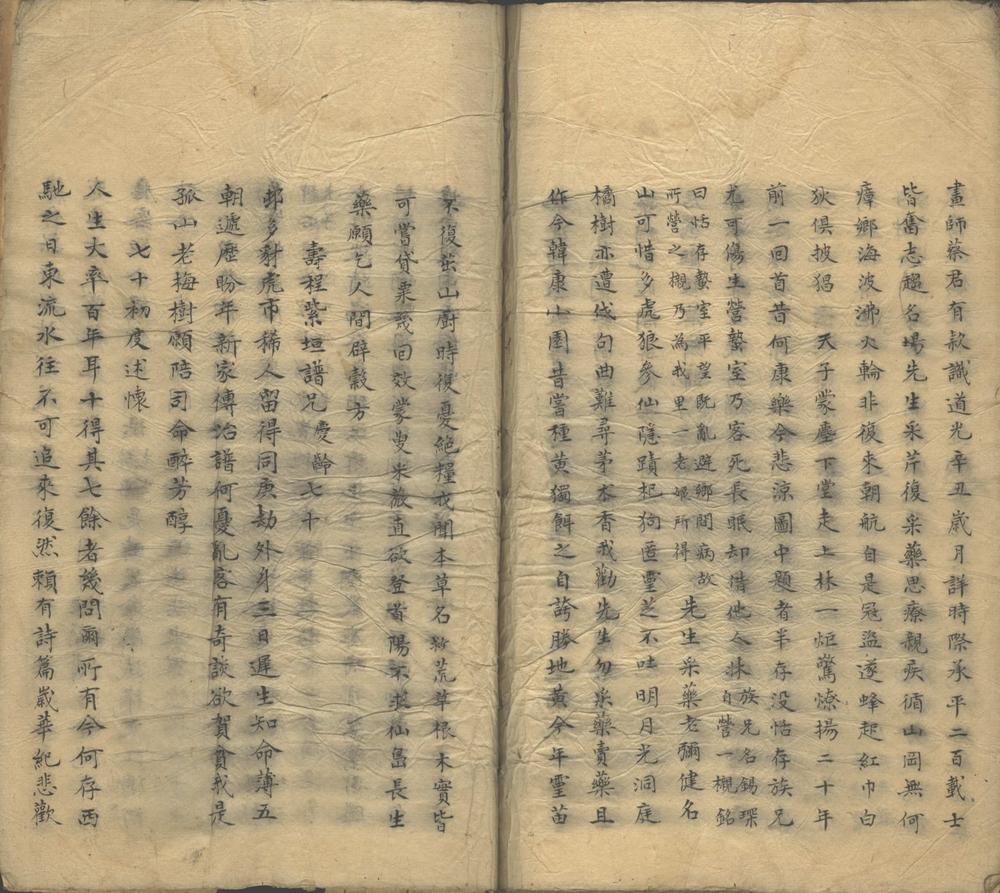 畫師蔡君有款識道光辛丑歲月詳時際承平二百載士
皆奮志趨名場先生采芹復采藥思療親疾循山岡無何
瘴鄉海波沸火輪非復來朝航自是冠盜遂蜂起紅巾白
狄俱披猖　天子蒙塵下堂走上林一炬驚燎揚二十年
前一回首昔何康樂今悲涼圖中題者半存沒恬存族兄
尤可傷生營槧室乃客死長眠却借他人牀族兄名錫琛自營一櫬銘
曰恬存槧室平望既亂避鄉間病故所營之櫬乃為我里一老嫗所得　先生采藥老彌健名
山可惜多虎狼參仙隱蹟杞狗匿靈芝不吐明月光洞庭
橘樹亦遭伐句曲難尋茅朮香我勸先生勿采藥賣藥且
作今韓康小園昔嘗種黃獨餌之自誇勝地黃今年靈苗
復茁山廚時復憂絕糧我聞本草名救荒草根木實皆
可嘗貸粟幾回效蒙叟采薇直欲登首陽不求仙島長生
藥願乞人間辟穀方
壽程紫垣譜兄慶齡七十
邨多豺虎市稀人留得同庚劫外身三日遲生知命薄五
朝遞歷盼年新家傳治譜何憂亂客有奇談欲賀貧我是
孤山老梅樹願陪司命醉芳醇
七十初度述懷
人生大率百年耳十得其七餘者幾問爾所有今何存西
馳之日東流水往不可追來復然賴有詩篇歲華紀悲歡